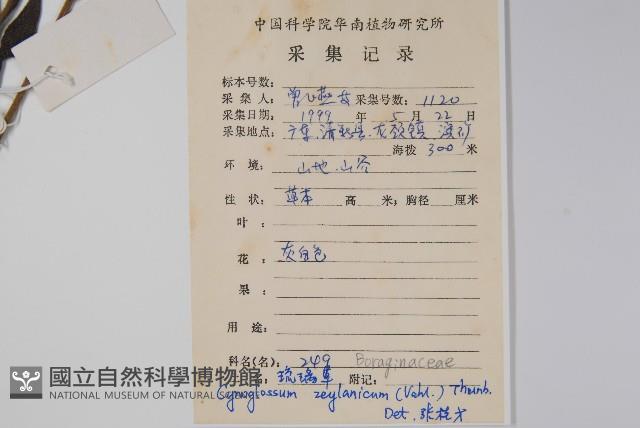 中国科学院华南植物研究所
采集记录
标本号数:
采集人: 曾飞燕 采集号数: 1120
采集日期: 1999 年 5 月 22 日
采集地点: 广东,清新县,龙颈镇,
海拨 300 米
环境: 山地,山谷
性状: 草本 高 米; 胸径 厘米
叶:
花: 灰白色
果:
用途:
科名(名): 249 Boraginaceae
名: 琉璃草 附记:
Cynoglossum zeylanicum (Vahl.) Thunb.
Det. 张桂才
國立自然科學博物館
NATIONAL MUSEUM OF NATURAL SCIENCE